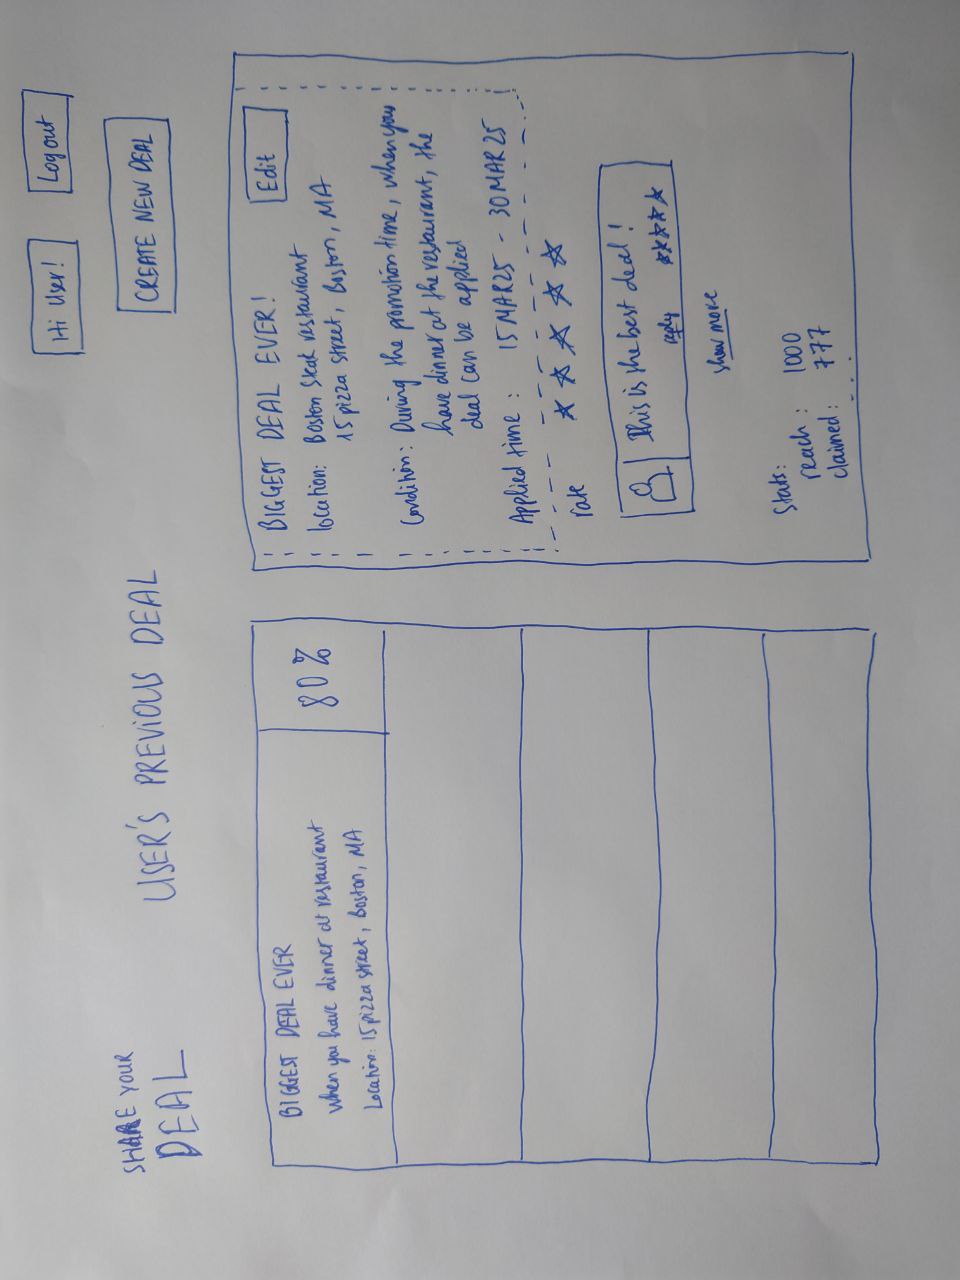 Hi User!
Logout
SHARE YOUR
DEAL
USER'S PREVIOUS DEAL
CREATE NEW DEAL
BIGGEST DEAL EVER
when you have dinner at restaurant
Location: 15 pizza street, Boston, MA
80%
BIGGEST DEAL EVER!
Edit
location: Boston Steak restaurant
15 pizza street, Boston, MA
Condition: During the promotion time, when you
have dinner at the restaurant, the
deal can be applied
Applied time : 15 MAR 25 - 30 MAR 25
rate
This is the best deal!
reply
show more
Stats:
reach : 1000
claimed : 777
...